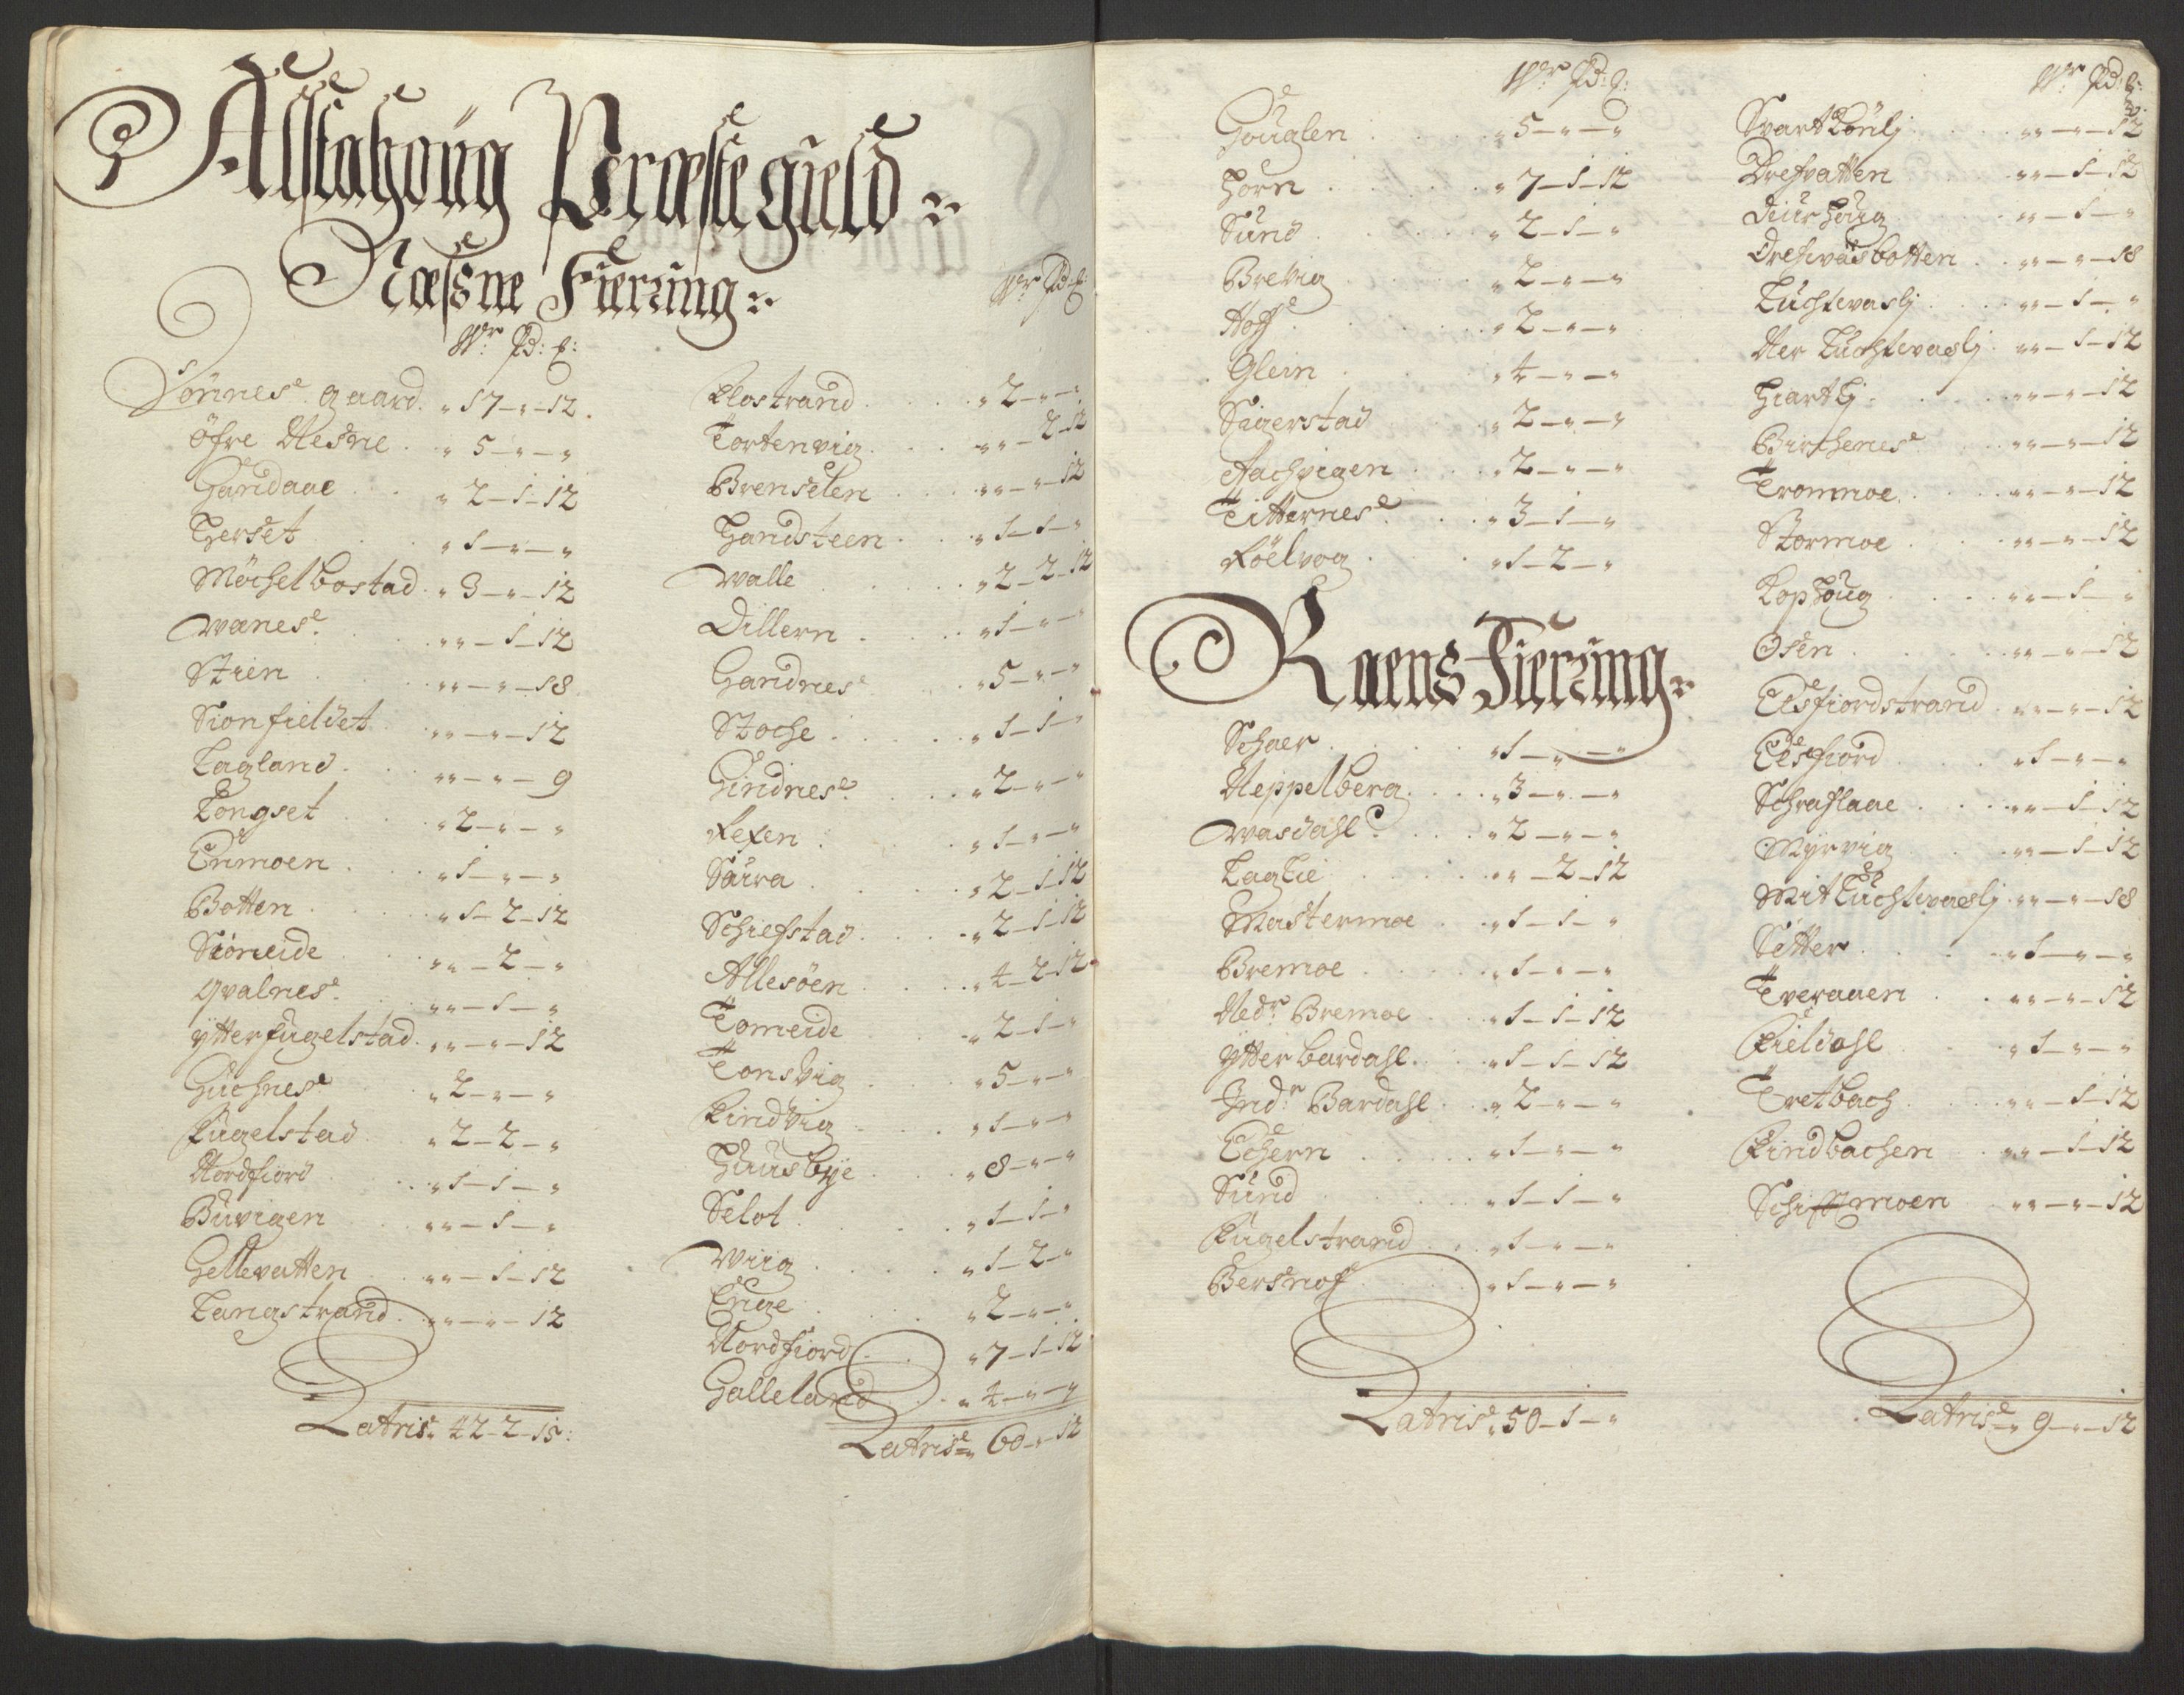 Alstahoug Præstegield
Næsne Fierring
Wr Pd: ℔:
Sonnes gaard „ 17 — „ — 12
Öfre Nesne „ 5 — „ — „
Handaae „ 2 — 1 — 12
Herset „ 1 — „ — „
Möchelbostad „ 3 — „ — 12
Wanes „ „ — 1 — 12
Stien „ „ — „ — 18
Sionfieldet „ „ — „ — 12
Lagland „ „ — „ — 9
Longset „ 2 — „ — „
Enmoen „ 1 — „ — „
Botten „ 1 — 2 — 12
Sioneide „ „ — 2 — „
Qvalnes „ „ — 1 — „
Ytterfugelstad „ „ — „ — 12
Huchnes „ 2 — „ — „
Fugelstad „ 2 — 2 — „
Nordfiord „ 1 — 1 — „
Buvigen „ „ — 1 — „
Hellevatten „ „ — 1 — 12
Langstrand „ „ — „ — 12
Latris 42 - 2 - 15
Wr Pd: ℔:
Flostrand „ 2 — „ — „
Tortenvig „ „ — 2 — 12
Brenselen „ „ — „ — 12
Handsteen „ 1 — 1 — „
Walle „ 2 — 2 — 12
Dillern „ 1 — „ — „
Handnes „ 5 — „ — „
Stoche „ 1 — 1 — „
Hindnes „ 2 — „ — „
Fexen „ 1 — „ — „
Saura „ 2 — 1 — 12
Schiefstad „ 2 — 1 — 12
Allesöen „ 4 — 2 — 12
Tomeide „ 2 — 1 — „
Tonsvig „ 5 — „ — „
Findvig „ 1 — „ — „
Huusbye „ 8 — „ — „
Selot „ 1 — 1 — „
Wiig „ 1 — 2 — „
Enge „ 2 — „ — „
Nordfiord „ 7 — 1 — 12
Halleland „ 4 — „ — „
Latris 60 — „ — 12
Wr Pd: ℔:
Houglen „ 5 — „ — „
Horn „ 7 — 1 — 12
Sund „ 2 — 1 — „
Brevig „ 2 — „ — „
Hoff „ 2 — „ — „
Glein „ 4 — „ — „
Sigerstad „ 2 — „ — „
Aachvigen „ 2 — „ — „
Titternes „ 3 — 1 — „
Föelvog „ 1 — 2 — „
Raens Fierring
Schaer „ 1 — „ — „
Neppelberg „ 3 — „ — „
Wasdahl „ 2 — „ — „
Laglie „ „ — 2 — 12
Mastermoe „ 1 — 1 — „
Bremoe „ 1 — „ — „
Nedr Bremoe „ 1 — 1 — 12
Ytter bardahl „ 1 — 1 — 12
Indr Bardahl „ 2 — „ — „
Echern „ 1 — „ — „
Sund „ 1 — 1 — „
Fugelstrand „ 1 — „ — „
Bersnof „ 1 — „ — „
Latris 50 — 1 — „
Wr Pd: ℔:
Svartlönlj „ „ — „ — 12
Drefvatten „ „ — 1 — 12
Diurhoug „ „ — 1 — „
Drefwasbotten „ „ — „ — 18
Luchtevaslj „ „ — 1 — „
Ner Luchtevaslj „ „ — 1 — 12
Hiartlj „ „ — „ — 12
Birchenes „ „ — „ — 12
Trommoe „ „ — „ — 12
Stormoe „ „ — „ — 12
Kophoug „ „ — 1 — „
Osen „ „ — „ — 12
Elsfiordstrand „ „ — „ — 12
Elsfiord „ 1 — „ — „
Schraflaae „ „ — 1 — 12
Myrvig „ „ — 1 — 12
Mitluchtevaslj „ „ — „ — 18
Sitter „ 1 — „ — „
Tveraaen „ „ — „ — 12
Fieldahl „ 1 — „ — „
Tretbach „ „ — 1 — 12
Findbachen „ „ — 1 — 12
Schiftmoen „ „ — „ — 12
Latris 9 — „ — 12